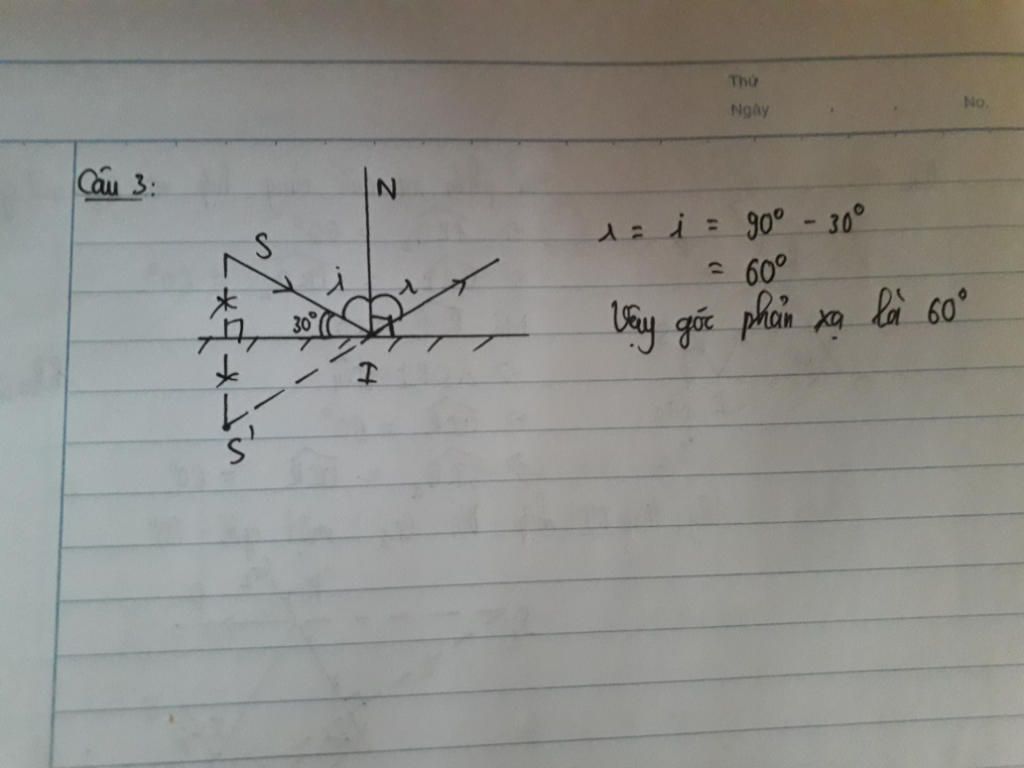 Thứ
Ngày . . No.
Câu 3:
N
S
i r
30°
I
S'
r = i = 90° - 30°
= 60°
Vậy góc phản xạ là 60°